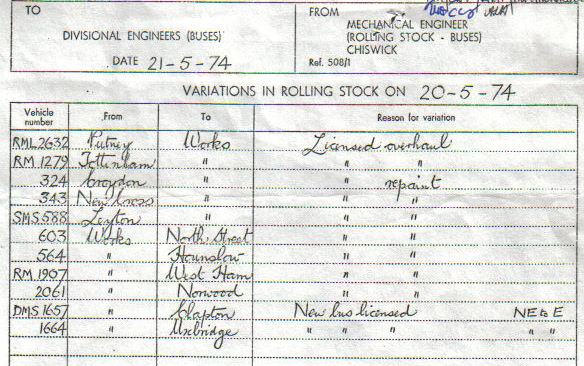 TO
DIVISIONAL ENGINEERS (BUSES)
DATE 21-5-74
FROM
MECHANICAL ENGINEER
(ROLLING STOCK - BUSES)
CHISWICK
Ref. 508/1
VARIATIONS IN ROLLING STOCK ON 20-5-74
Vehicle number From To Reason for variation
RML 2632 Putney Works Licensed overhaul
RM 1279 Tottenham " " "
324 Croydon " " repaint
343 New Cross " " "
SMS 588 Leyton " " "
603 Works North Street " "
564 " Hounslow " "
RM 1907 " West Ham " "
2061 " Norwood " "
DMS 1657 " Clapton New bus licensed NE to E
1664 " Uxbridge " " " " "